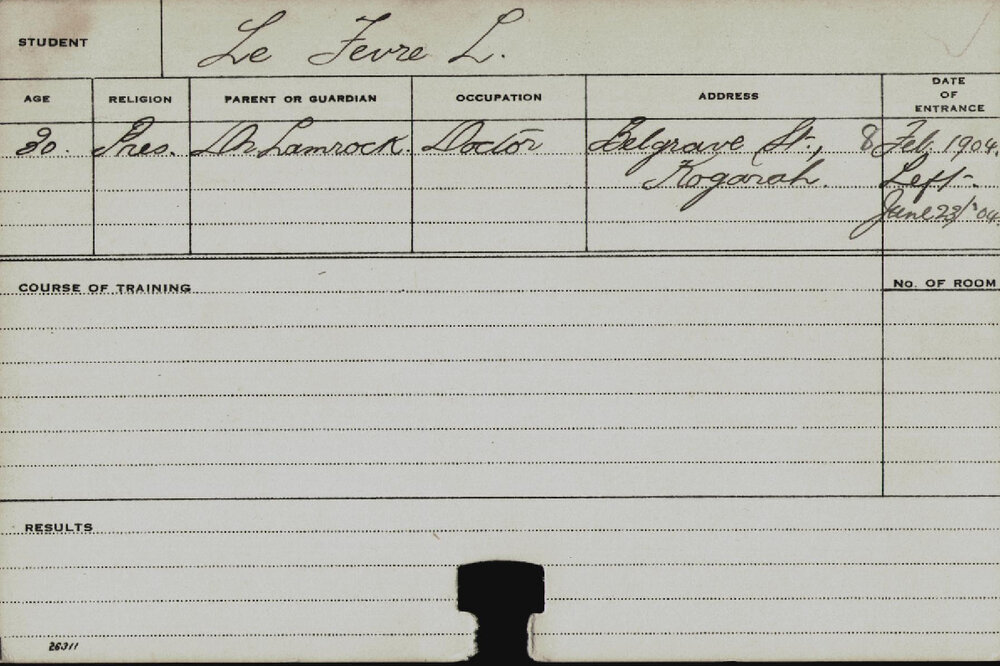 STUDENT Le Fevre L.
AGE RELIGION PARENT OR GUARDIAN OCCUPATION ADDRESS DATE OF ENTRANCE
30. Pres. Dr Lamrock. Doctor Belgrave St., 8 Feb. 1904.
Kogarah. Left.
June 23/'04
COURSE OF TRAINING No. OF ROOM
RESULTS
26311